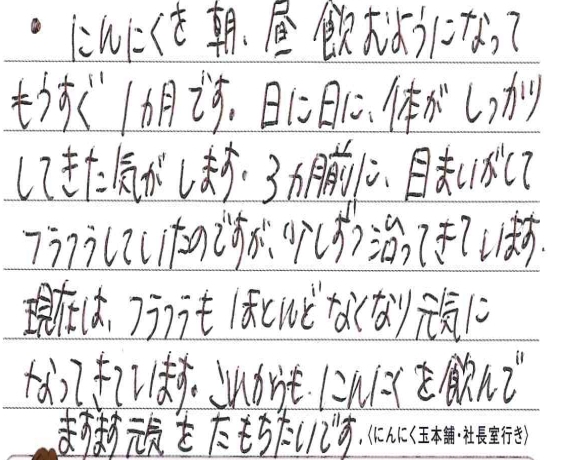 ・にんにくを朝、昼飲むようになって
もうすぐ1ヵ月です。日に日に、体がしっかり
してきた気がします。3ヵ月前に、目まいがして
フラフラしていたのですが、少しずつ治ってきています。
現在は、フラフラもほとんどなくなり元気に
なってきています。これからも、にんにくを飲んで
ますます元気をたもちたいです。〈にんにく玉本舗・社長室行き〉